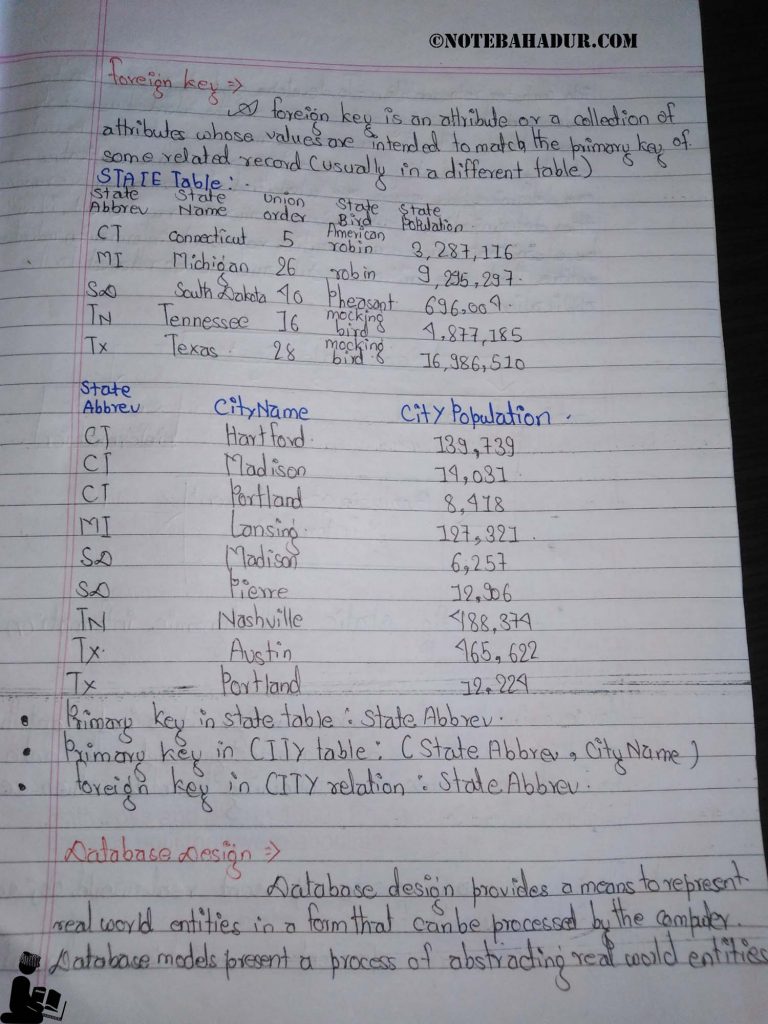 ©NOTEBAHADUR.COM
foreign key ⇒
A foreign key is an attribute or a collection of
attributes whose values are intended to match the primary key of
some related record (usually in a different table)
STATE Table :
State Abbrev State Name Union order State Bird State Population
CT Connecticut 5 American robin 3,287,116
MI Michigan 26 robin 9,295,297.
SD South Dakota 40 Pheasant 696,004.
TN Tennessee 16 mocking bird 4,877,185
Tx Texas. 28 mocking bird. 16,986,510
State Abbrev City Name City Population.
CT Hartford. 139,739
CT Madison 14,031
CT Portland 8,418
MI Lansing. 127,321.
SD Madison 6,257
SD Pierre 12,906
TN Nashville 488,374
Tx. Austin 465,622
Tx Portland 12,224
• Primary key in state table : State Abbrev.
• Primary key in CITY table : (State Abbrev, City Name)
• foreign key in CITY relation : State Abbrev.
Database Design ⇒
Database design provides a means to represent
real world entities in a form that can be processed by the computer.
Database models present a process of abstracting real world entities